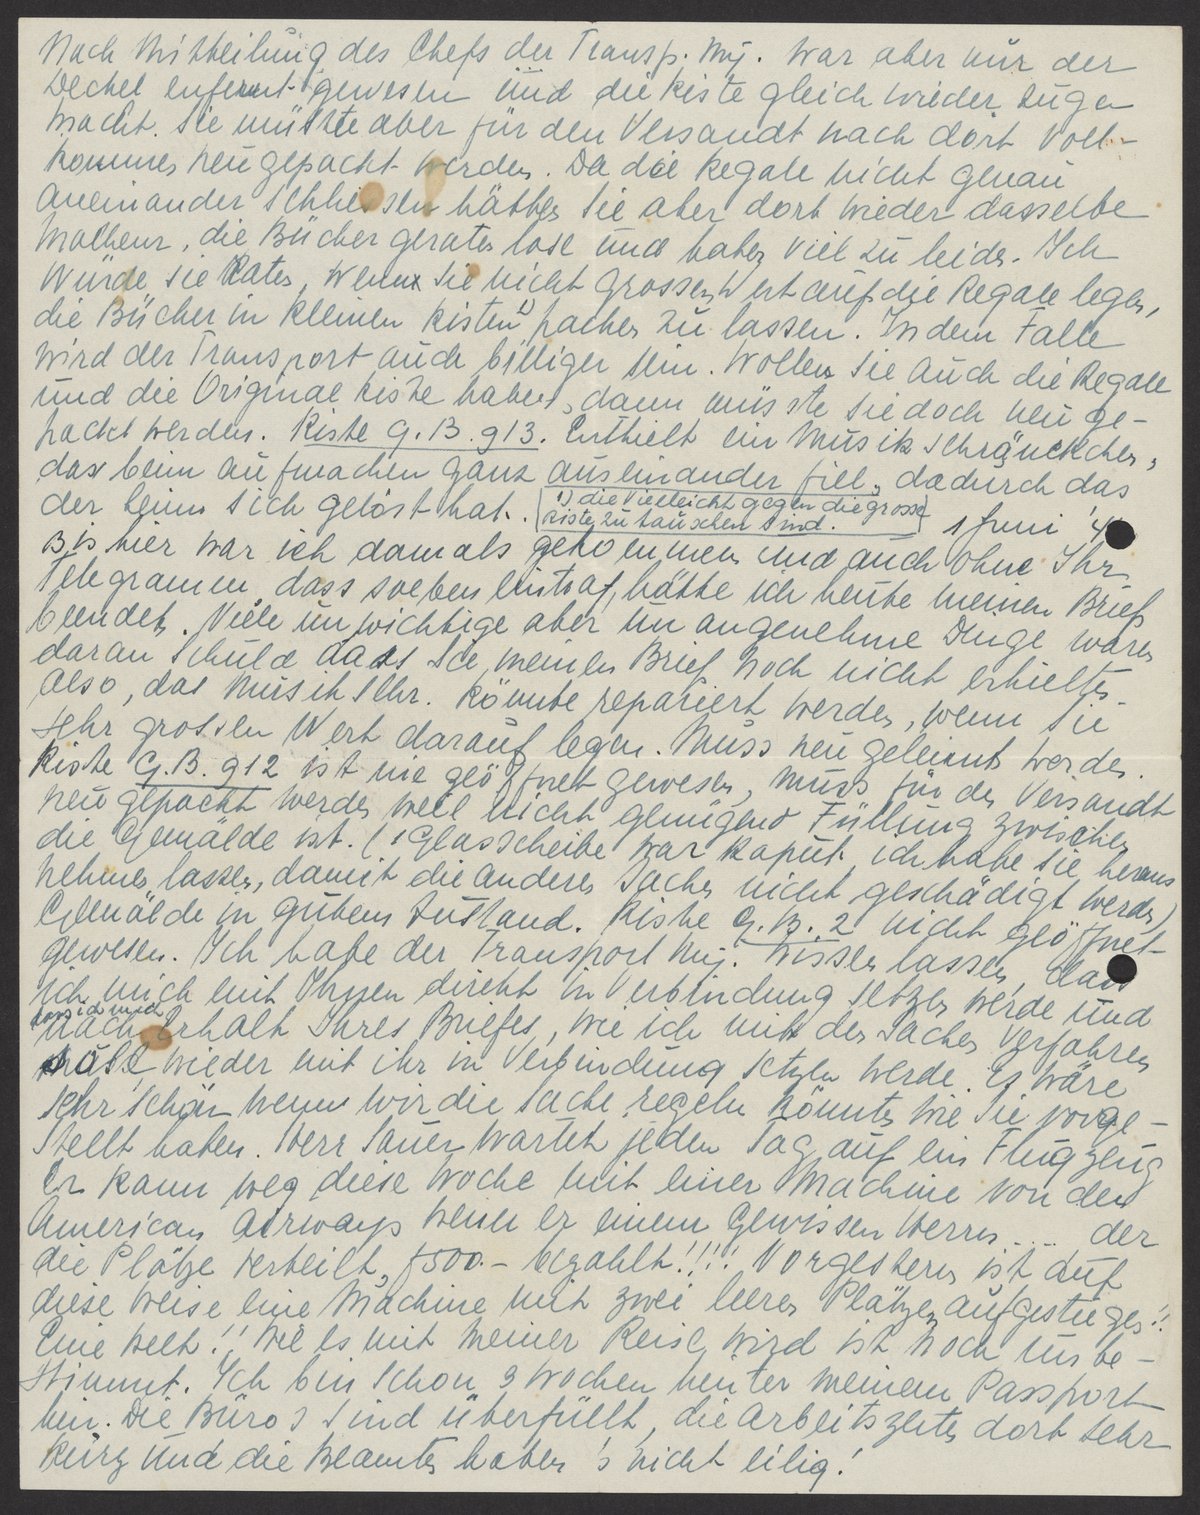 Nach Mittheilung des Chefs der Transp. Mij. war aber nur der
Deckel enfernt gewesen und die Kiste gleich wieder zuge
macht. Sie müsste aber für den Versandt nach dort voll-
kommen neu gepackt werden. Da die Regale nicht genau
aneinander schliessen hätten Sie aber dort wieder dasselbe
Malheur, die Bücher geraten lose und haben viel zu leiden. Ich
würde Sie Raten, wenn Sie nicht grossen Wert auf die Regale legen,
die Bücher in kleinen Kisten 1) packen zu lassen. In dem Falle
wird der Transport auch billiger sein. Wollen Sie auch die Regale
und die Original Kiste haben, dann müsste sie doch neu ge-
packt werden. Kiste G.B. 913. Enthielt ein Musik Schränckchen,
das beim aufmachen ganz auseinander fiel, dadurch das
der Leim sich gelöst hat.
1) die vielleicht gegen die grosse
Kiste zu tauschen sind.
1 Juni
Bis hier war ich damals gekommen und auch ohne Ihr
Telegramm, dass soeben eintraf, hätte ich heute meinen Brief
beendet. Viele unwichtige aber unangenehme Dinge waren
daran Schuld dass Sie meinen Brief noch nicht erhielten
also, das Musik Schr. könnte repariert werden, wenn Sie
sehr grossen Wert darauf legen. Muss neu geleimt werden.
Kiste G.B. 912 ist nie geöffnet gewesen, muss für den Versandt
neu gepackt werden weil nicht genügend Füllung zwischen
die Gemälde ist. (1 Glasscheibe war kaput, ich habe sie heraus
nehmen lassen, damit die anderen Sachen nicht geschädigt werden)
Gemälde in gutem Zustand. Kiste G.B. 2 nicht geöffnet
gewesen. Ich habe der Transport Mij. wissen lassen, dass
ich mich mit Ihnen direkt in Verbindung setzen werde und
dass ich mich
nach Erhalt Ihres Briefes, wie ich mit den Sachen verfahren
soll, wieder mit ihr in Verbindung setzen werde. Es wäre
sehr schön wenn wir die Sache regeln könnten wie Sie vorge-
stellt haben. Herr Sauer wartet jeden Tag auf ein Flugzeug
Er kann weg diese Woche mit einer Machine von den
American Airways wenn er einem Gewissen Herrn .... der
die Plätze verteilt, f500.- bezahlt!!!! Vorgestern ist auf
diese Weise eine Machine mit zwei leeren Plätzen aufgestiegen!!
Eine Welt!! Wie es mit meiner Reise wird ist noch unbe-
stimmt. Ich bin schon 3 Wochen hinter meinem Passport
hin. Die Büros sind überfüllt, die Arbeitszeiten dort sehr
kurz und die Beamten haben's nicht eilig!